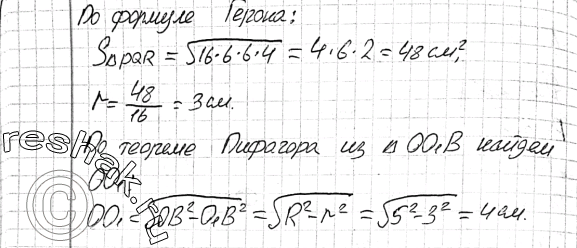 По формуле Герона:
S△PQR = √16·6·6·4 = 4·6·2 = 48 см²,
r = 48/16 = 3 см.
По теореме Пифагора из △ OO₁B найдем
OO₁.
OO₁ = √OB²-O₁B² = √R²-r² = √5²-3² = 4 см.
reshak.ru
©